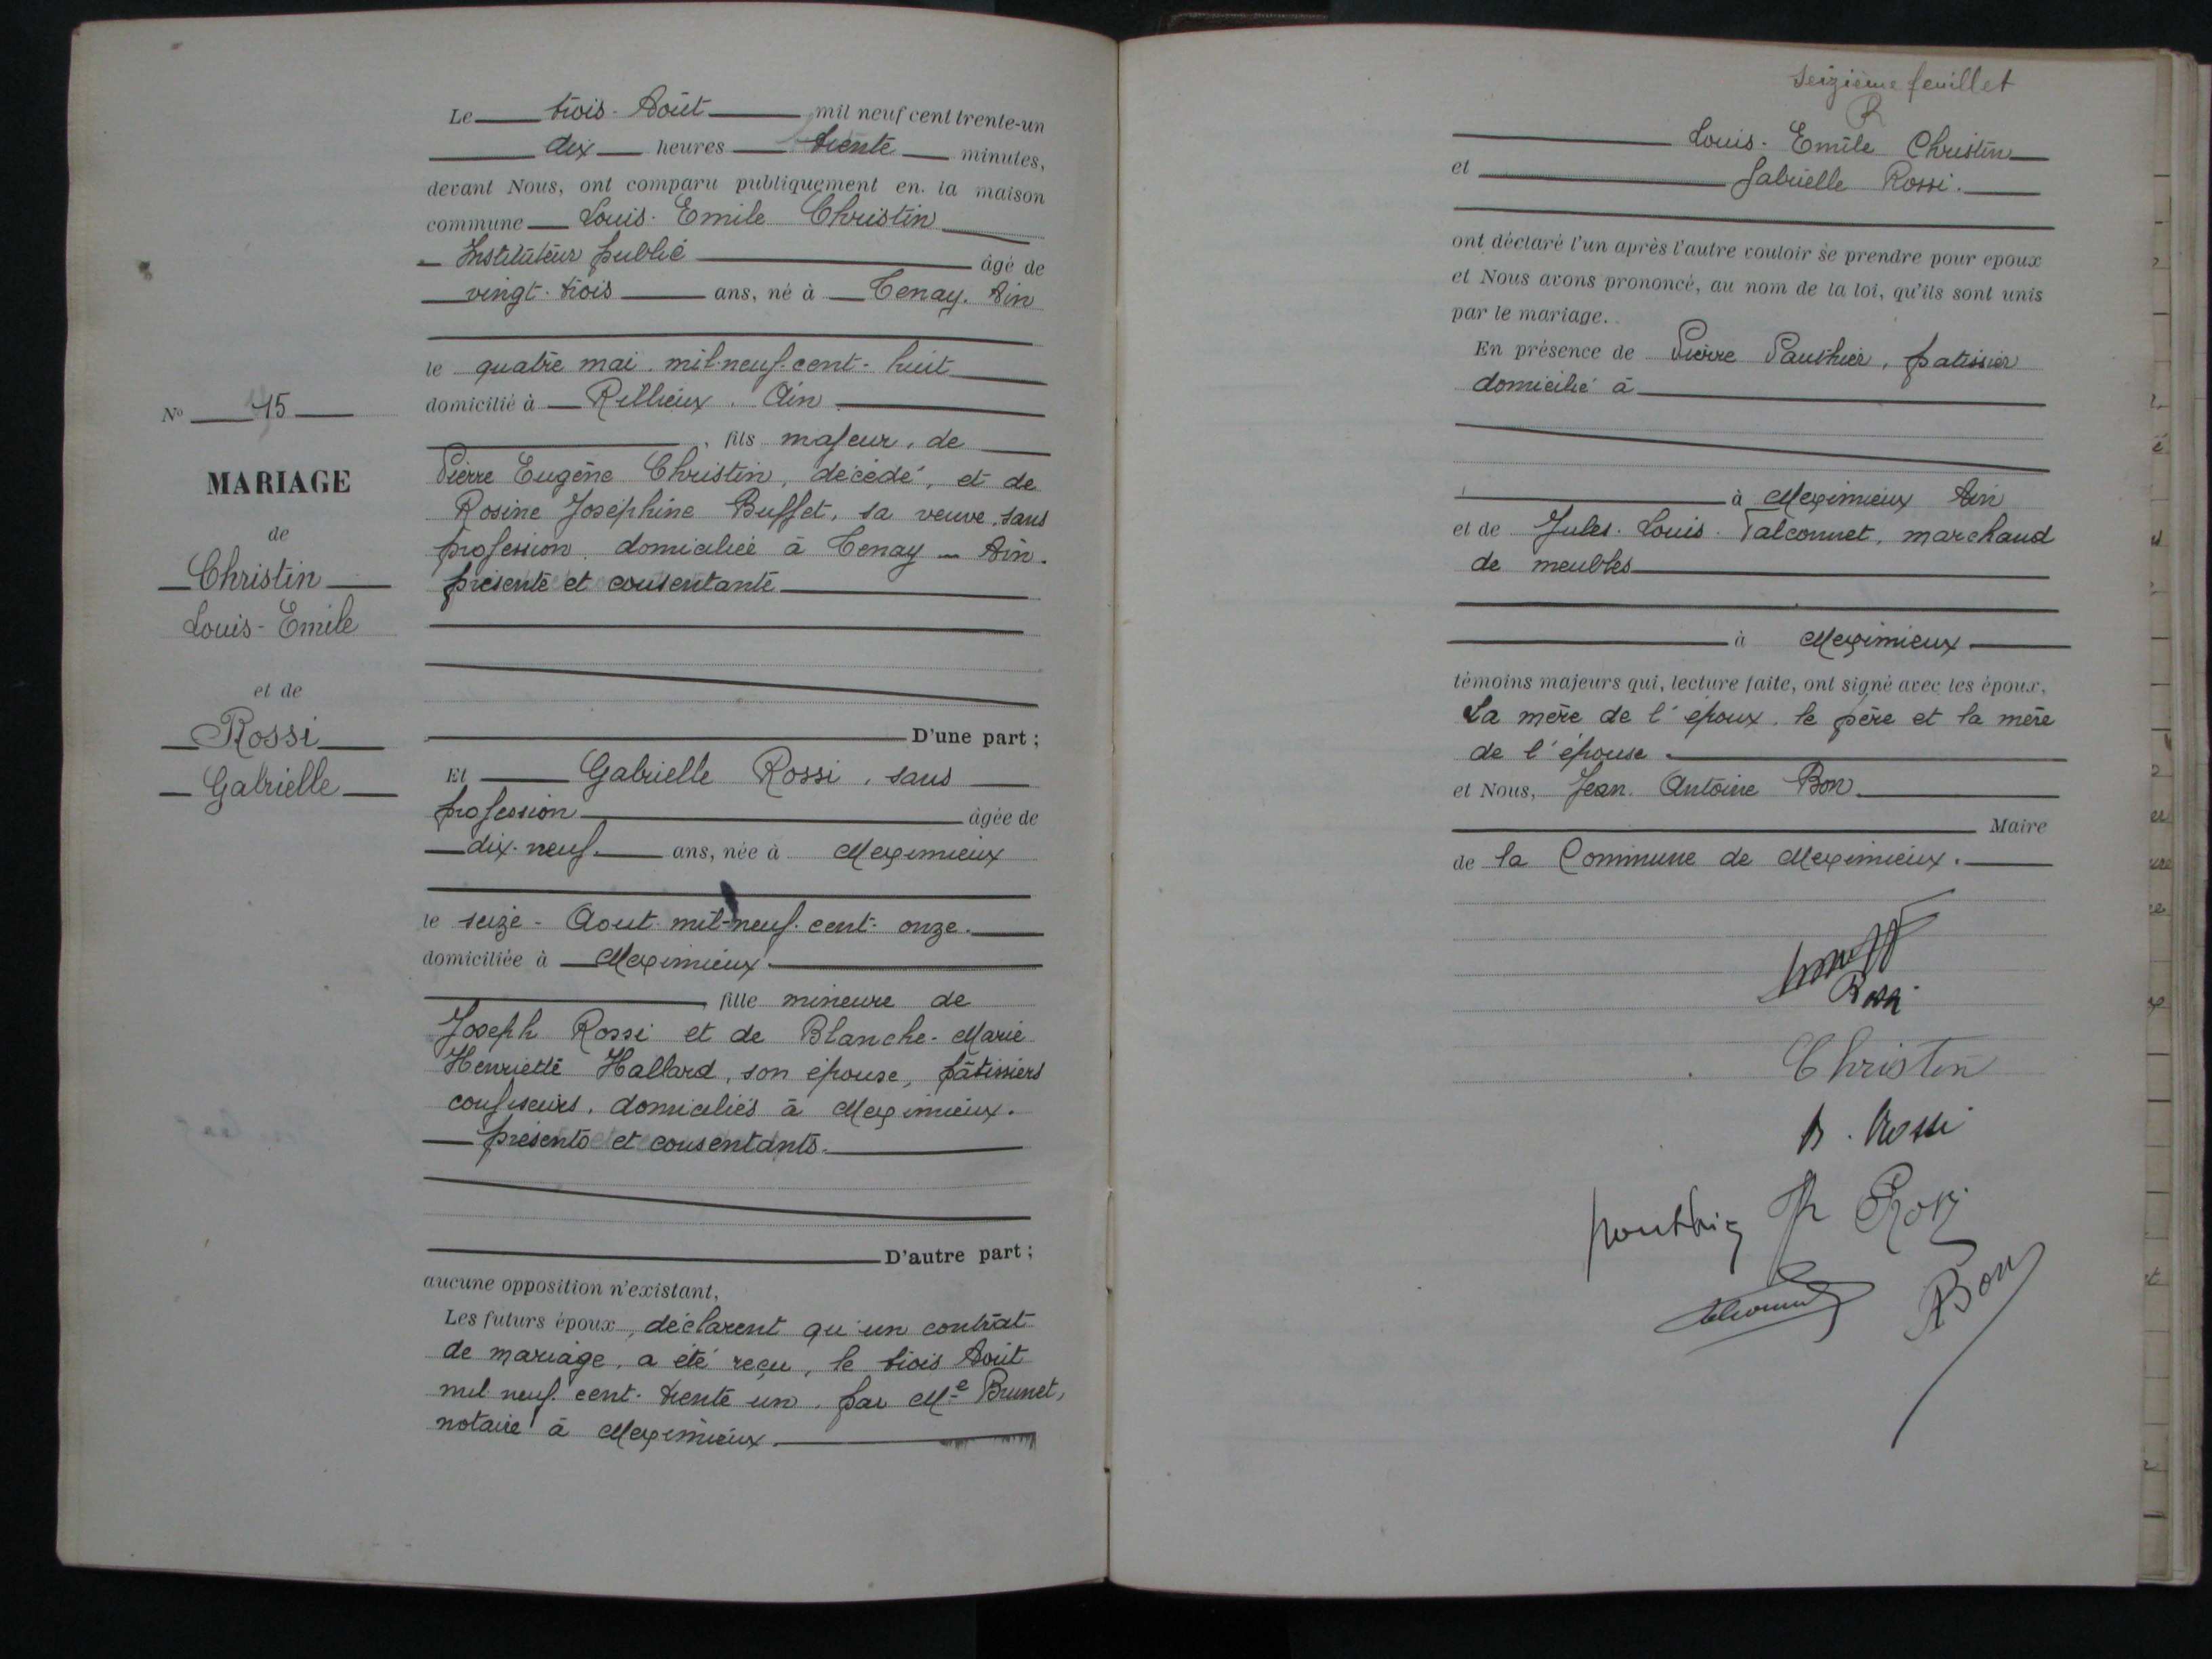 Le trois Août mil neuf cent trente-un
dix heures trente minutes,
devant Nous, ont comparu publiquement en la maison
commune Louis-Emile Christin
Instituteur public âgé de
vingt-trois ans, né à Tenay. Ain
le quatre mai mil-neuf-cent-huit
domicilié à Rillieux. Ain
, fils majeur, de
Pierre Eugène Christin, décédé, et de
Rosine Joséphine Buffet, sa veuve, sans
profession domiciliée à Tenay - Ain.
présente et consentante
D'une part ;
N° 15
MARIAGE
de
Christin
Louis-Emile
et de
Rossi
Gabrielle
Et Gabrielle Rossi, sans
profession âgée de
dix-neuf ans, née à Meximieux
le seize-Aout mil-neuf-cent-onze.
domiciliée à Meximieux
, fille mineure de
Joseph Rossi et de Blanche-Marie
Henriette Hallard, son épouse, pâtissiers
confiseurs, domiciliés à Meximieux.
présents et consentants.
D'autre part ;
aucune opposition n'existant,
Les futurs époux, déclarent qu'un contrat
de mariage, a été reçu, le trois Août
mil neuf cent-trente un, par Me Brunet,
notaire à Meximieux.
Seizième feuillet
Louis-Emile Christin
et Gabrielle Rossi.
ont déclaré l'un après l'autre vouloir se prendre pour époux
et Nous avons prononcé, au nom de la loi, qu'ils sont unis
par le mariage.
En présence de Pierre Pauthier, patissier
domicilié à
à Meximieux Ain
et de Jules-Louis Talconnet, marchand
de meubles
à Meximieux
témoins majeurs qui, lecture faite, ont signé avec les époux,
La mère de l'époux, le père et la mère
de l'épouse
et Nous, Jean-Antoine Bon
Maire
de la Commune de Meximieux.
Rossi
Christin
B. Rossi
Rossi
Bon